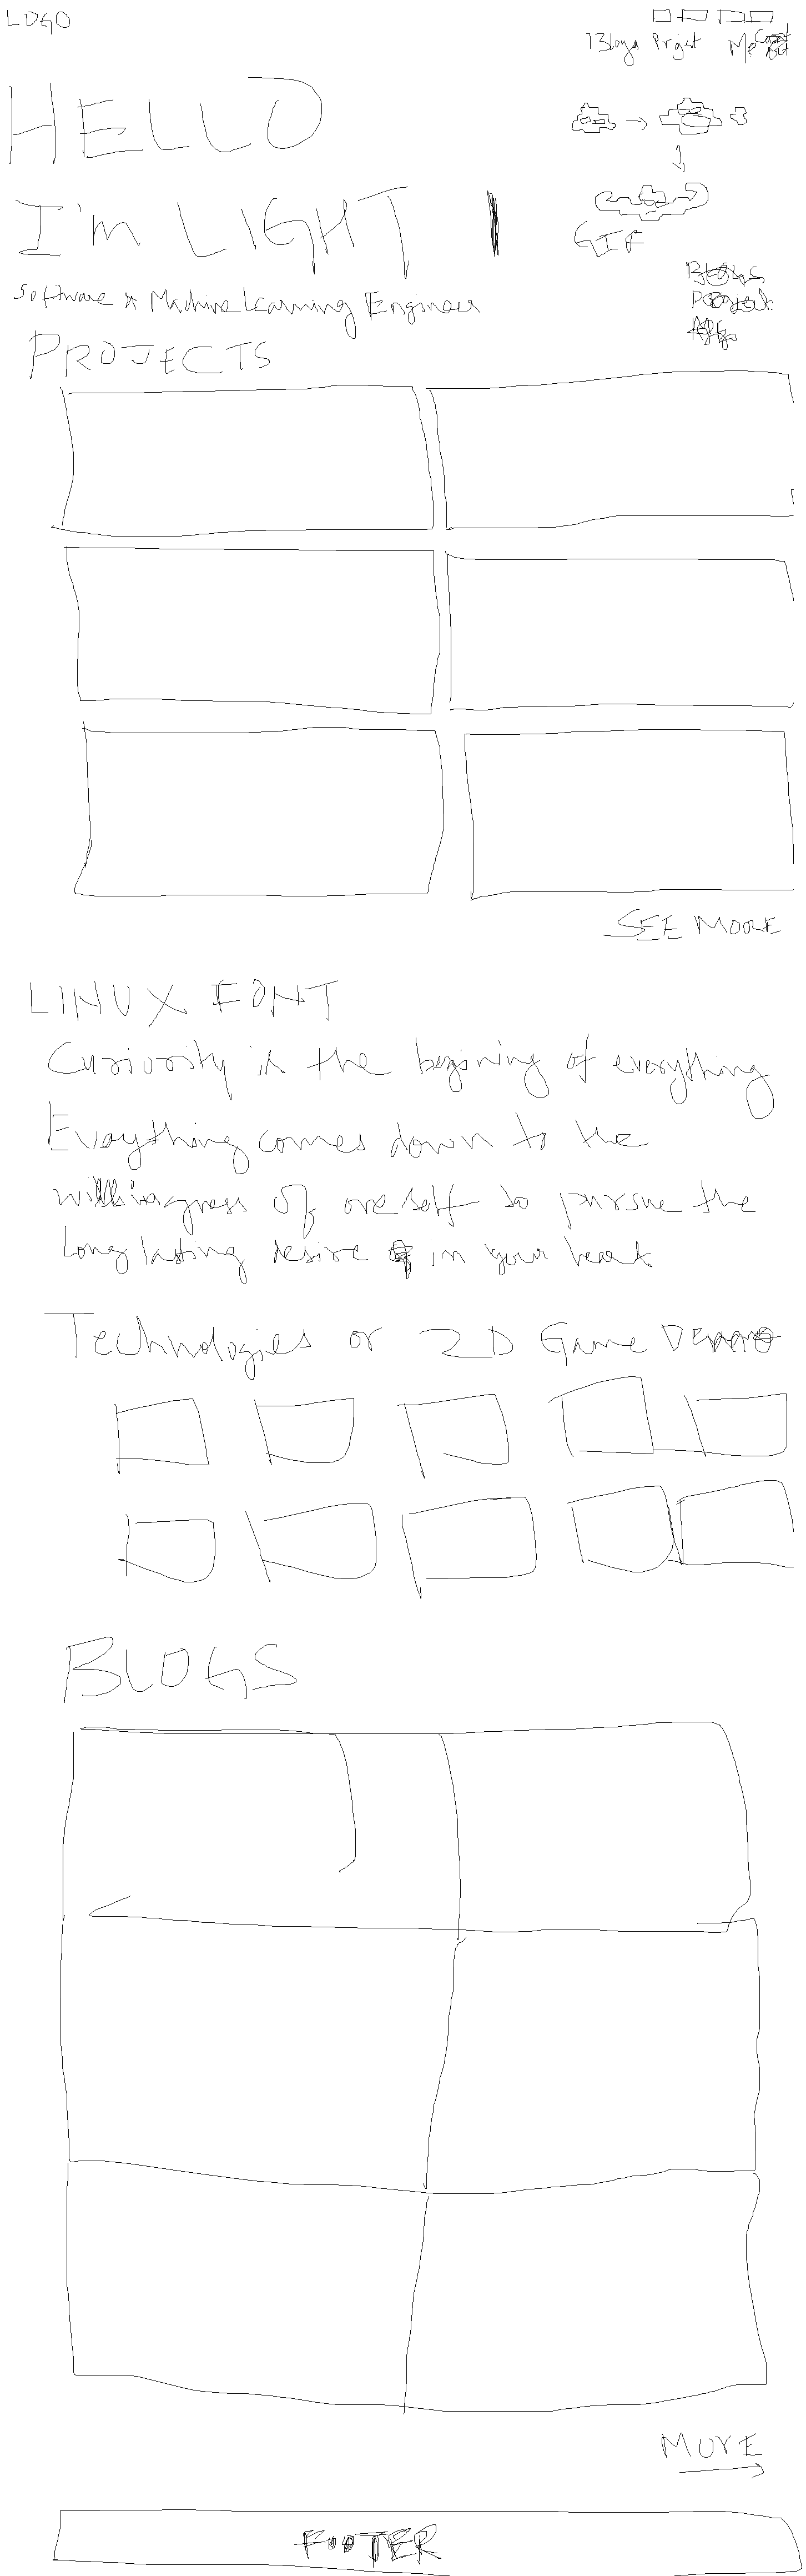 LOGO
Blogs Projet Me
HELLO
I'm LIGHT
GIF
Software & Machine Learning Engineer
PROJECTS
SEE MORE
LINUX FONT
Curiority is the begining of everything
Everything comes down to the
willingness of oneself to pursue the
Long lasting desire in your heart
Technologies or 2D Game DEMO
BLOGS
MORE
FOOTER